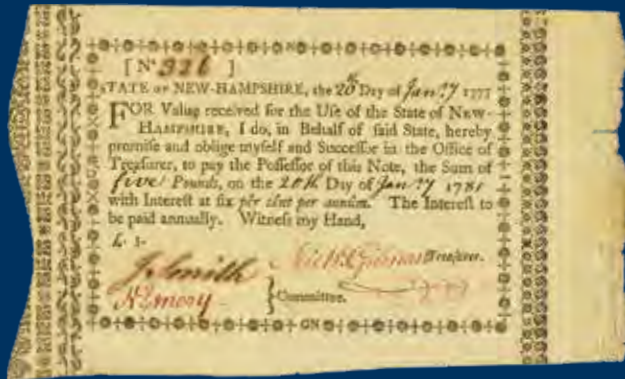 [ No 336 ]
STATE OF NEW-HAMPSHIRE, the 20th Day of Jan.ry 1777
FOR Value received for the Use of the State of NEW-
HAMPSHIRE, I do, in Behalf of said State, hereby
promise and oblige myself and Successor in the Office of
Treasurer, to pay the Possessor of this Note, the Sum of
five Pounds, on the 20th Day of Jan.ry 1781
with Interest at six per cent per annum. The Interest to
be paid annually. Witness my Hand,
£. 5-
J Smith Nichs Gilman Treasurer.
N Emery } Committee.
GN